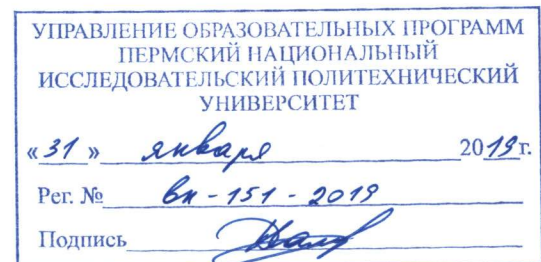 УПРАВЛЕНИЕ ОБРАЗОВАТЕЛЬНЫХ ПРОГРАММ
ПЕРМСКИЙ НАЦИОНАЛЬНЫЙ
ИССЛЕДОВАТЕЛЬСКИЙ ПОЛИТЕХНИЧЕСКИЙ
УНИВЕРСИТЕТ
«31» января 2019г.
Рег. № вн-151-2019
Подпись